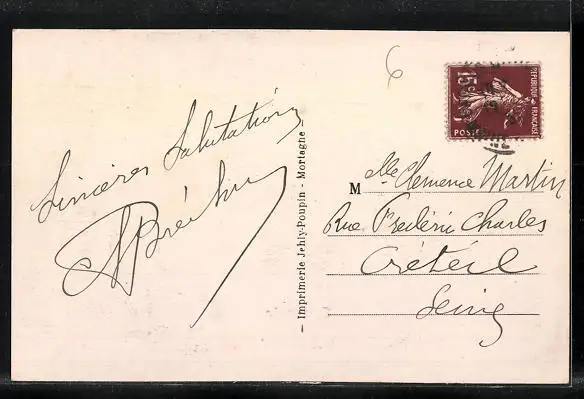 6
Sincères Salutations
- Imprimerie Jehly-Poupin - Mortagne -
REPUBLIQUE FRANÇAISE
15c
POSTES
Melle Clemence Martin
Rue Frédéric Charles
Créteil
Seine